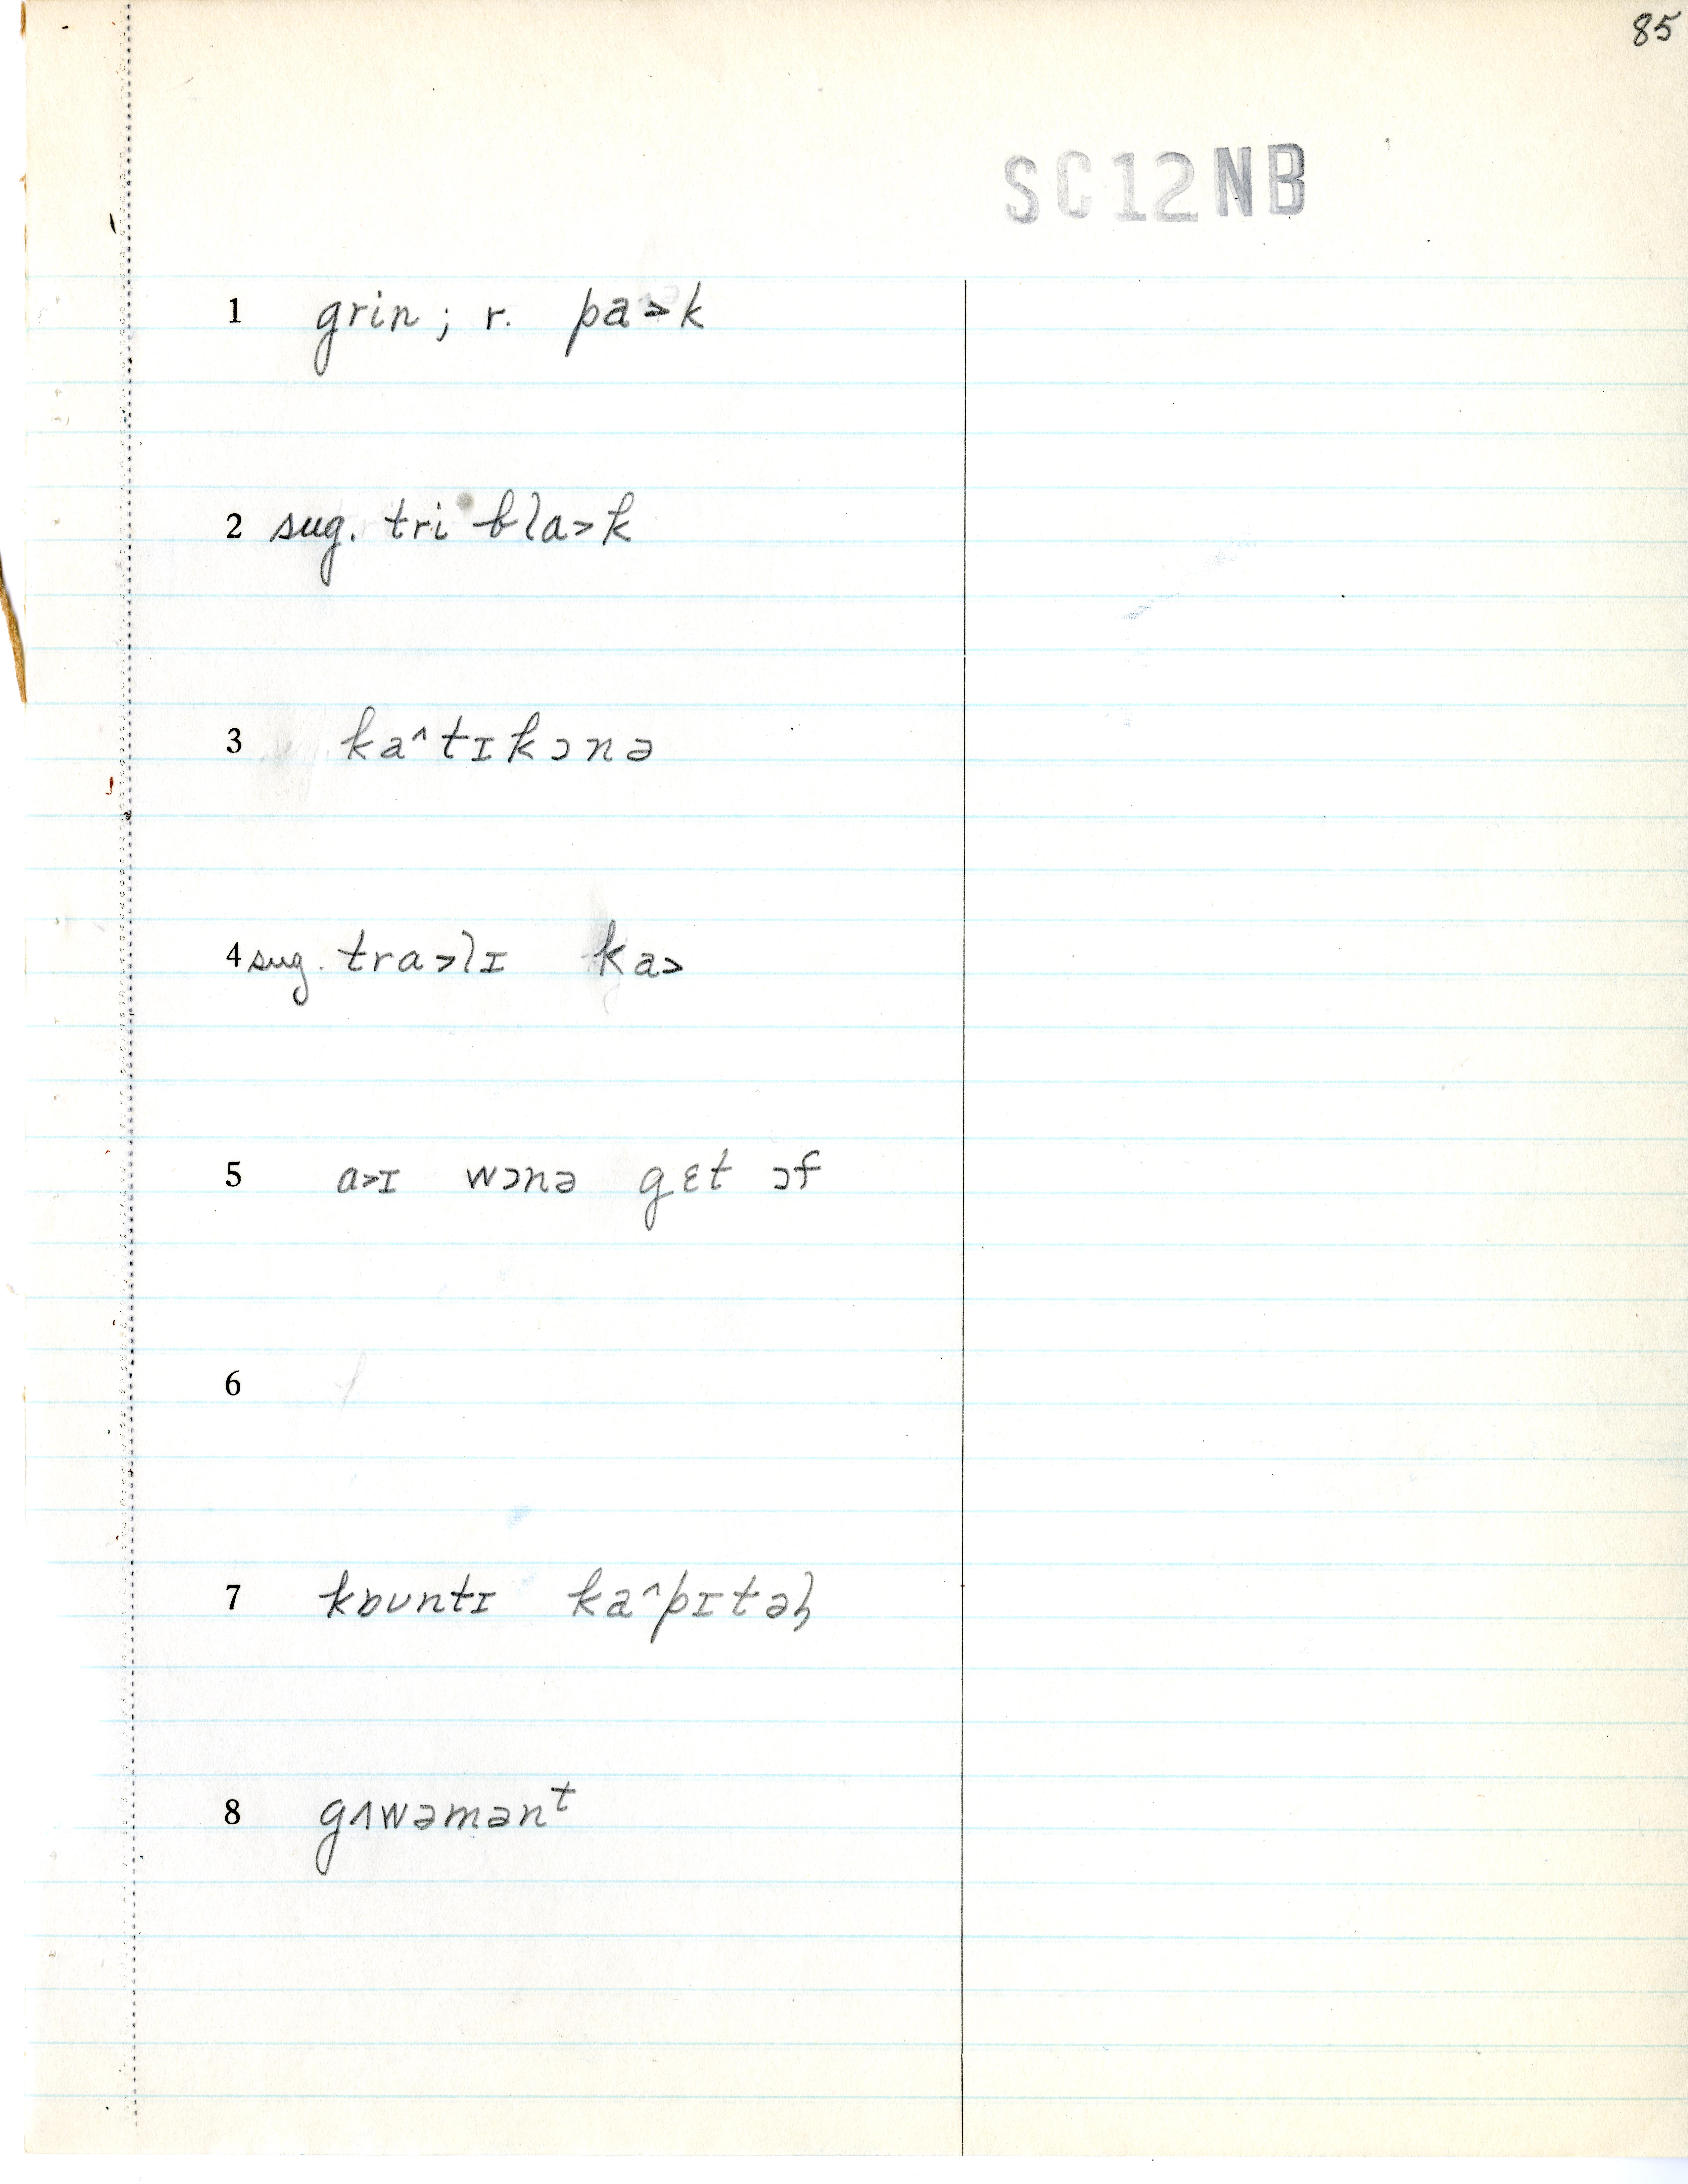 85
SC12NB
1 grin ; r. pa˃k
2 sug. tri bla˃k
3 ka˄tɪkɔnə
4 sug. tra˃lɪ ka˃
5 a˃ɪ wɔnə gɛt ɔf
6
7 kɒʊntɪ ka˄pɪtəl̩
8 gʌwəmənᵗ